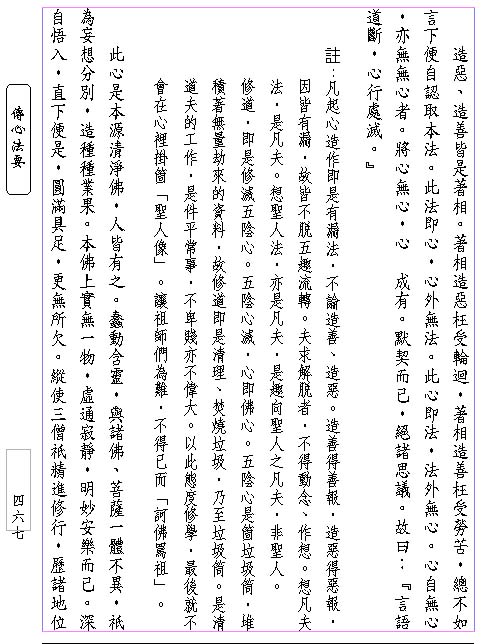 造惡、造善皆是著相。著相造惡枉受輪迴，著相造善枉受勞苦，總不如
言下便自認取本法。此法即心，心外無法。此心即法，法外無心。心自無心
，亦無無心者。將心無心，心　成有。默契而已，絕諸思議。故曰：『言語
道斷，心行處滅。』
註：凡起心造作即是有漏法，不論造善、造惡。造善得善報，造惡得惡報，
因皆有漏，故皆不脫五趣流轉。夫求解脫者，不得動念、作想。想凡夫
法，是凡夫。想聖人法，亦是凡夫，是趣向聖人之凡夫，非聖人。
修道，即是修滅五陰心。五陰心滅，心即佛心。五陰心是箇垃圾筒，堆
積著無量劫來的資料，故修道即是清理、焚燒垃圾，乃至垃圾筒。是清
道夫的工作，是件平常事，不卑賤亦不偉大。以此態度修學，最後就不
會在心裡掛箇「聖人像」。讓祖師們為難，不得已而「訶佛罵祖」。
此心是本源清淨佛，人皆有之。蠢動含靈，與諸佛、菩薩一體不異，祇
為妄想分別，造種種業果。本佛上實無一物，虛通寂靜，明妙安樂而已。深
自悟入，直下便是，圓滿具足，更無所欠。縱使三僧祇精進修行，歷諸地位
傳心法要
四六七